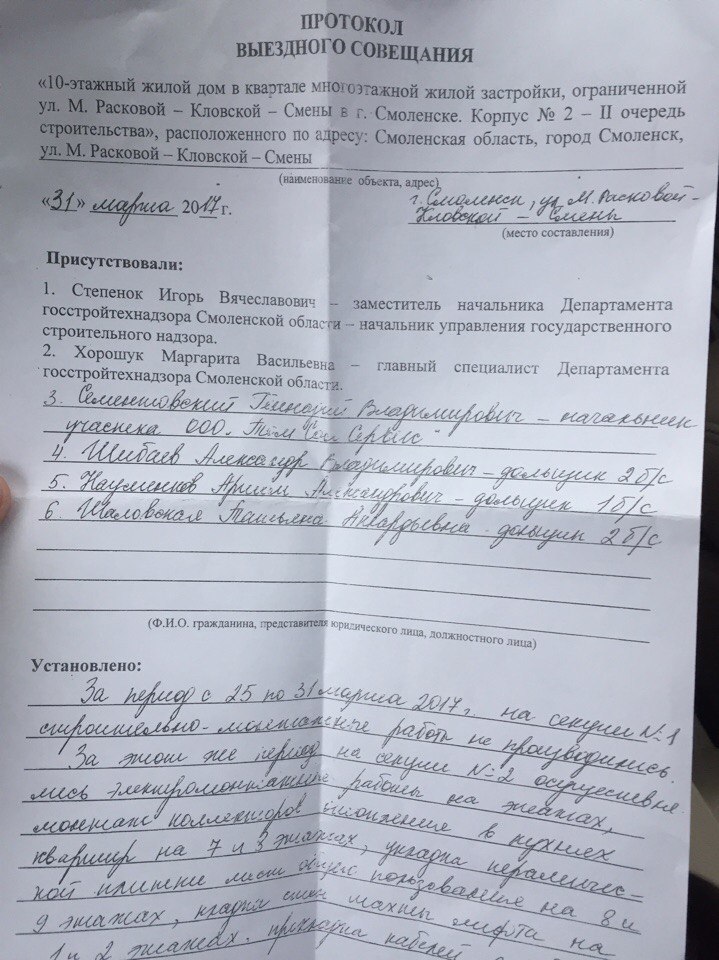 ПРОТОКОЛ
ВЫЕЗДНОГО СОВЕЩАНИЯ
«10-этажный жилой дом в квартале многоэтажной жилой застройки, ограниченной
ул. М. Расковой – Кловской – Смены в г. Смоленске. Корпус № 2 – II очередь
строительства», расположенного по адресу: Смоленская область, город Смоленск,
ул. М. Расковой – Кловской – Смены
(наименование объекта, адрес)
«31» марта 2017 г.
г. Смоленск, ул. М. Расковой-
Кловской – Смены
(место составления)
Присутствовали:
1. Степенок Игорь Вячеславович – заместитель начальника Департамента
госстройтехнадзора Смоленской области – начальник управления государственного
строительного надзора.
2. Хорошук Маргарита Васильевна – главный специалист Департамента
госстройтехнадзора Смоленской области.
3. Владимирович – начальник
участка ООО Сервис"
4. Шибаев Александр Владимирович – дольщик 2 б/с
5. Науменков Александрович – дольщик 1 б/с
6. Шаловская Татьяна - дольщик 2 б/с
(Ф.И.О. гражданина, представителя юридического лица, должностного лица)
Установлено:
За период с 25 по 31 марта 2017 г. на секции № 1
строительно-монтажные работы не производились.
За этот же период на секции № 2 осуществля-
лись электромонтажные работы на этажах,
монтаж коллекторов отопления в кухнях
квартир на 7 и этажах, укладка керамичес=
кой плитки мест общего пользования на 8 и
9 этажах, кладка стен шахты лифта на
1 и 2 этажах, прокладка кабелей